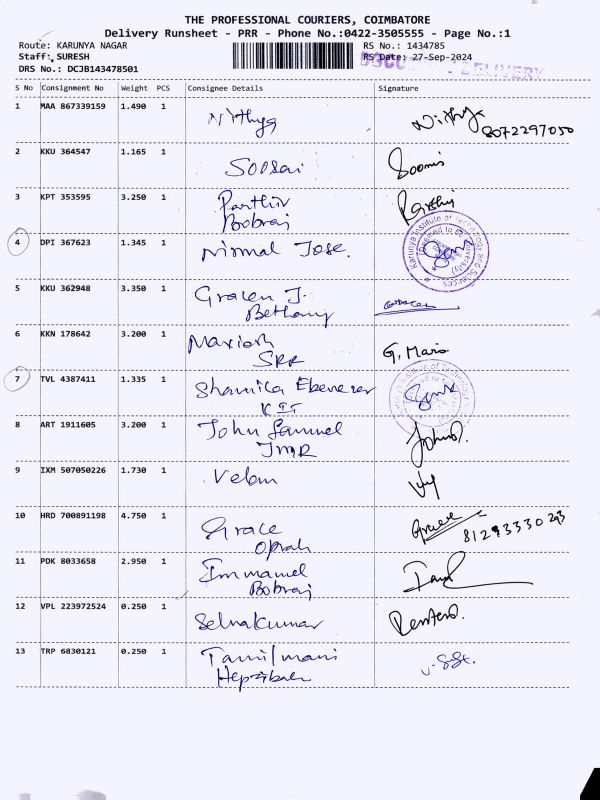 THE PROFESSIONAL COURIERS, COIMBATORE
Delivery Runsheet - PRR - Phone No.:0422-3505555 - Page No.:1
Route: KARUNYA NAGAR
RS No.: 1434785
Staff: SURESH
RS Date: 27-Sep-2024
DRS No.: DCJB143478501
DELIVERY
S No Consignment No Weight PCS Consignee Details Signature
1 MAA 867339159 1.490 1 Nithya Nithya
8072297050
2 KKU 364547 1.165 1 Soosai
3 KPT 353595 3.250 1 Parthiv
Boobraj
4 DPI 367623 1.345 1 Nirmal Jose.
Karunya Institute of Technology and Sciences
(Deemed to be University)
5 KKU 362948 3.350 1 Gracen J.
Bethany
6 KKN 178642 3.200 1 G. Mario
SRR
7 TVL 4387411 1.335 1 Shamila Ebenezer
KIT
8 ART 1911605 3.200 1 John Samuel
JMR
9 IXM 507050226 1.730 1 Velan
10 HRD 700891198 4.750 1 Grace Grace
Oprah 81293330293
11 PDK 8033658 2.950 1 Immanuel
Bobraj
12 VPL 223972524 0.250 1 Selvakumar
13 TRP 6830121 0.250 1 Tamilmani
Hepzibah